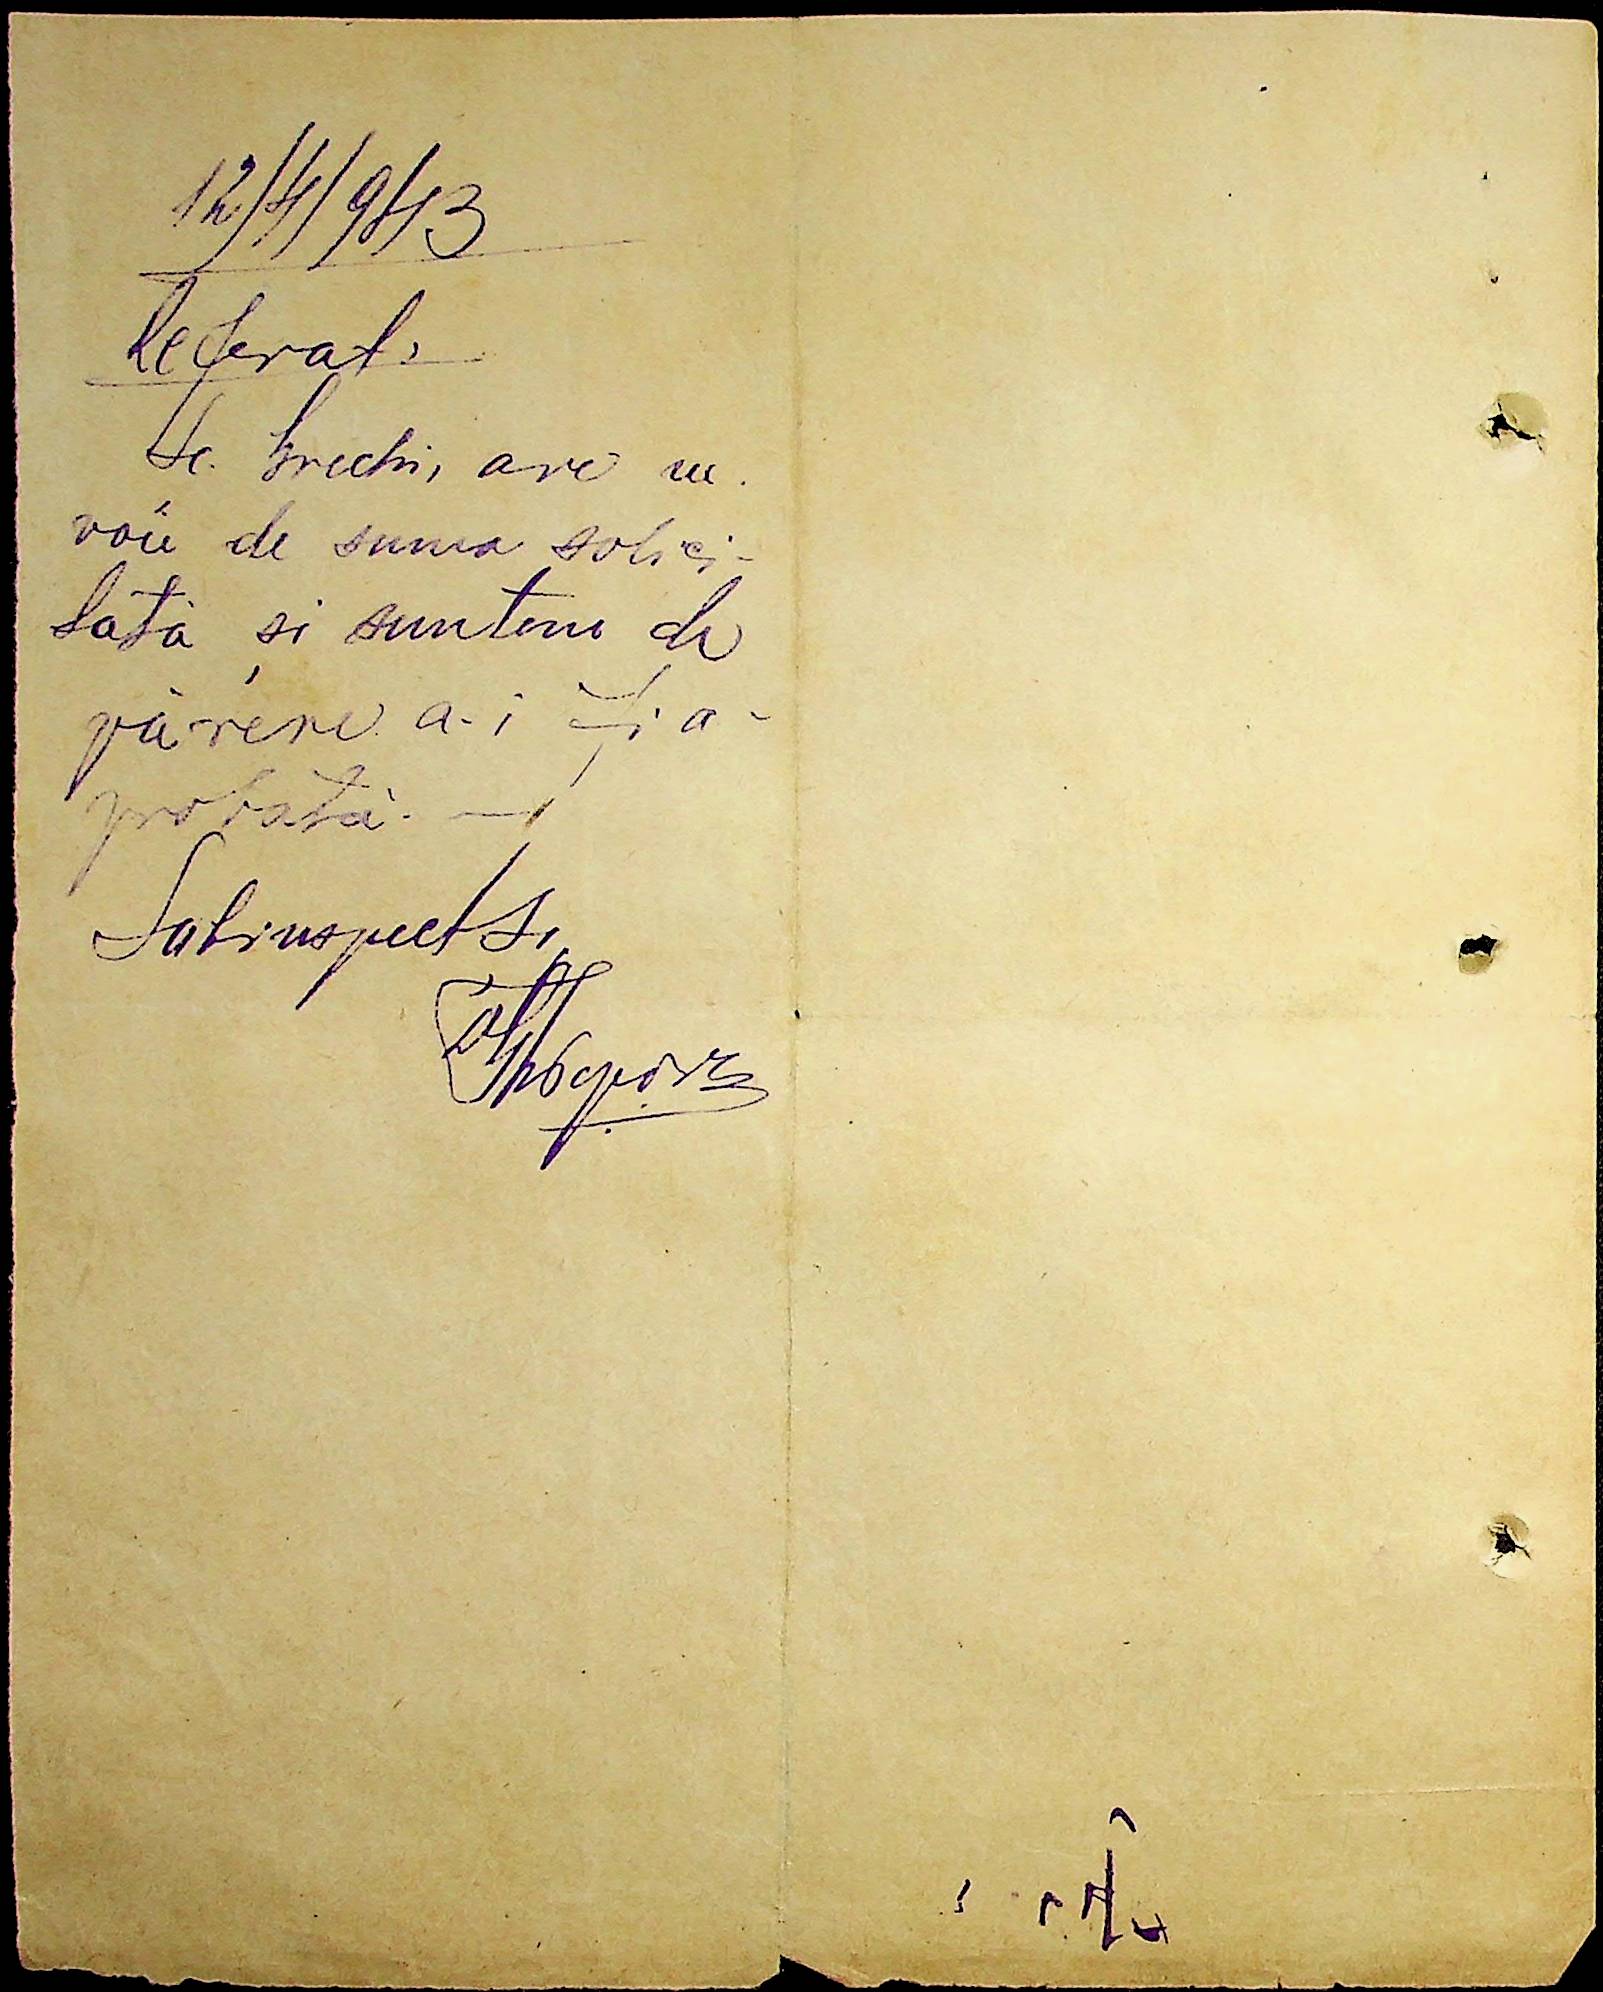 12/4/943
Referat.
are ne
voie de suma solici-
tată și suntem de
părere a-i fi a-
probată.
Subinspect